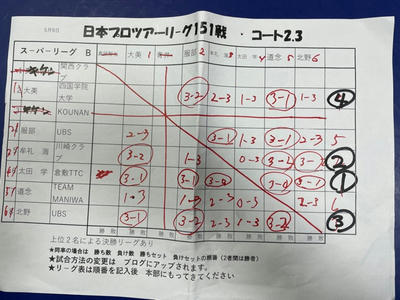 5月9日
日本プロツアーリーグ151戦 ・コート2.3
スーパーリーグ B 大美 1 服部 2 牟礼 海 3 太田 学 4 道念 5 北野 6
関西クラブ
大美 四国学院大学 3-2 2-3 1-3 3-1 1-3 4
KOUNAN
服部 UBS 2-3 3-1 1-3 3-1 2-3 5
牟礼 海 川崎クラブ 3-2 1-3 0-3 3-2 3-2 2
太田 学 倉敷TTC 3-1 3-1 3-0 3-0 3-1 1
道念 TEAM MANIWA 1-3 1-3 2-3 0-3 2-3 6
北野 UBS 3-1 3-2 2-3 1-3 3-2 3
勝 敗 勝 敗 勝 敗 勝 敗 勝 敗 勝 敗 勝 敗 勝 敗
上位2名による決勝リーグあり
★同率の場合は 勝ち数 負け数 勝ちセット 負けセットの順番（2者間は勝者）
★試合方法の変更は ブログにアップされます。
★リーグ表は順番を記入後 本部にもってきてください